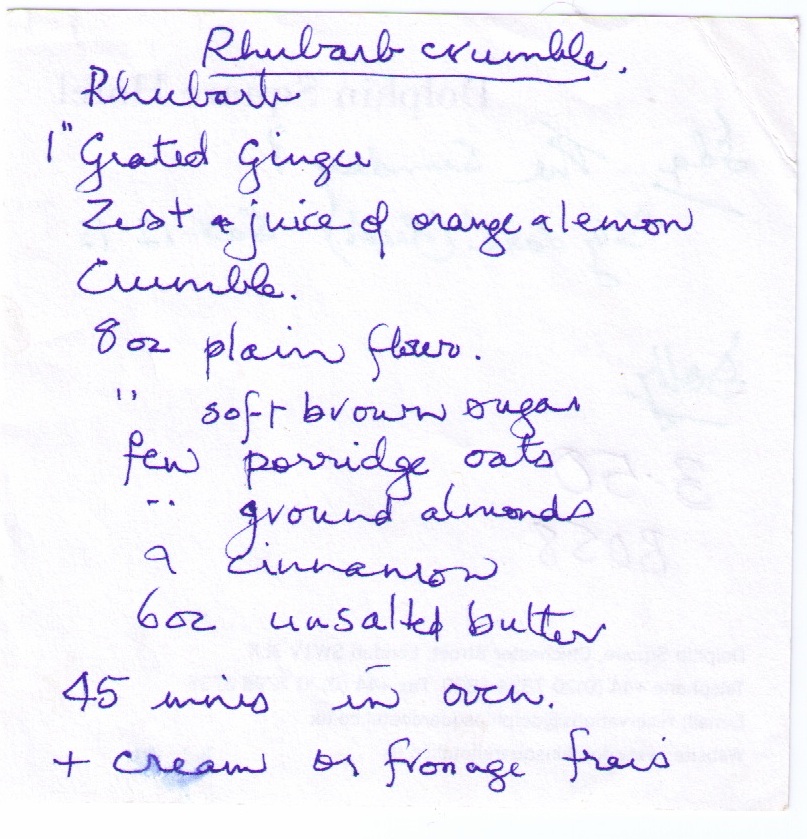 Rhubarb crumble.
Rhubarb
1" Grated Ginger
Zest & juice of orange & lemon
Crumble.
8oz plain flour.
" soft brown sugar
few porridge oats
" ground almonds
& cinnamon
6oz unsalted butter
45 mns in oven.
+ cream or fromage frais